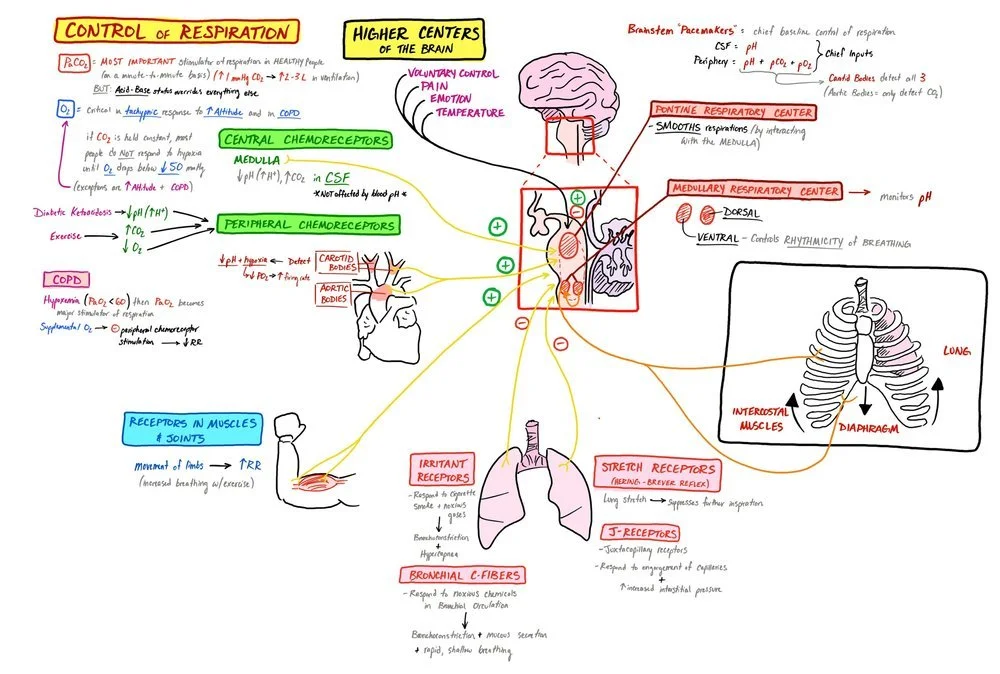 CONTROL OF RESPIRATION
PaCO2 = MOST IMPORTANT stimulator of respiration in HEALTHY People
(on a minute-to-minute basis) (↑1 mmHg CO2 → ↑2-3 L in ventilation)
BUT: Acid-Base status overrides everything else
O2 = critical in tachypneic response to ↑ Altitude and in COPD
if CO2 is held constant, most
people do NOT respond to hypoxia
until O2 drops below ↓50 mmHg
(exceptions are ↑Altitude + COPD)
HIGHER CENTERS
OF THE BRAIN
VOLUNTARY CONTROL
PAIN
EMOTION
TEMPERATURE
Brainstem "Pacemakers" = chief baseline control of respiration
CSF = pH
Periphery = pH + pCO2 + pO2
} Chief Inputs
Carotid Bodies detect all 3
(Aortic Bodies = only detect CO2)
PONTINE RESPIRATORY CENTER
- SMOOTHS respirations (by interacting
with the MEDULLA)
MEDULLARY RESPIRATORY CENTER → monitors pH
DORSAL
VENTRAL - Controls RHYTHMICITY OF BREATHING
CENTRAL CHEMORECEPTORS
MEDULLA
↓pH (↑H+), ↑CO2 in CSF
*NOT affected by blood pH*
PERIPHERAL CHEMORECEPTORS
Diabetic Ketoacidosis → ↓pH (↑H+)
Exercise → ↑CO2
↓O2
↓pH + hypoxia ← Detect
↳ ↓PO2 → ↑ firing rate
CAROTID
BODIES
AORTIC
BODIES
COPD
Hypoxemia (PaO2 < 60) then PaO2 becomes
major stimulator of respiration
Supplemental O2 → ⊖ peripheral chemoreceptor
stimulation → ↓RR
+
-
+
+
+
-
-
RECEPTORS IN MUSCLES
& JOINTS
movement of limbs → ↑RR
(increased breathing w/exercise)
LUNG
INTERCOSTAL
MUSCLES
DIAPHRAGM
IRRITANT
RECEPTORS
- Respond to cigarette
smoke + noxious
gases
↓
Bronchoconstriction
+
Hypercapnea
BRONCHIAL C-FIBERS
- Respond to noxious chemicals
in Bronchial Circulation
↓
Bronchoconstriction + mucous secretion
+ rapid, shallow breathing
STRETCH RECEPTORS
(HERING-BREUER REFLEX)
Lung stretch → suppresses further inspiration
J-RECEPTORS
- Juxtacapillary receptors
- Respond to engorgement of capillaries
+
↑ increased interstitial pressure